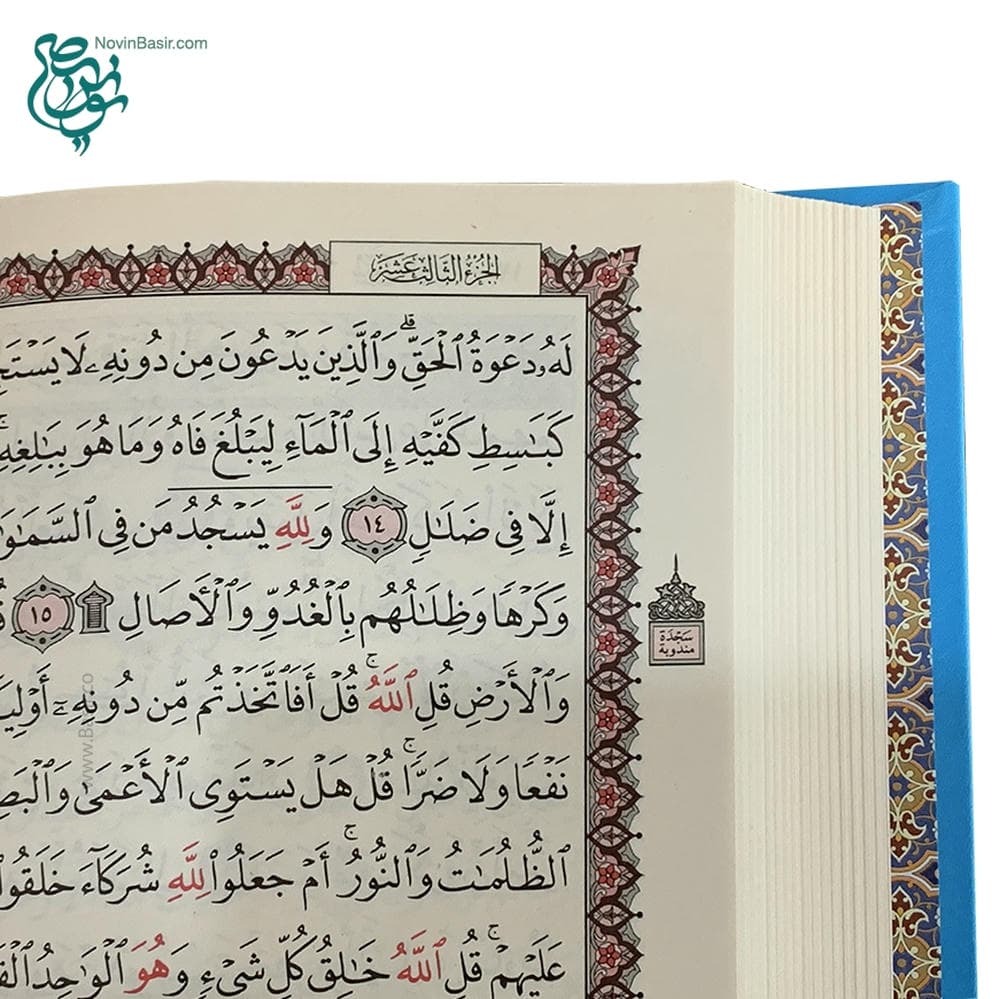 NovinBasir.com
الجزء الثالث عشر
لَهُۥ دَعۡوَةُ ٱلۡحَقِّۚ وَٱلَّذِينَ يَدۡعُونَ مِن دُونِهِۦ لَا
كَبَٰسِطِ كَفَّيۡهِ إِلَى ٱلۡمَآءِ لِيَبۡلُغَ فَاهُ وَمَا هُوَ بِبَٰلِغِهِۦۚ
إِلَّا فِي ضَلَٰلٖ ١٤ وَلِلَّهِۤ يَسۡجُدُۤ مَن فِي
وَكَرۡهٗا وَظِلَٰلُهُم بِٱلۡغُدُوِّ وَٱلۡأٓصَالِ ۩ ١٥
سجدة
مندوبة
وَٱلۡأَرۡضِ قُلِ ٱللَّهُۚ قُلۡ أَفَٱتَّخَذۡتُم مِّن دُونِهِۦٓ
نَفۡعٗا وَلَا ضَرّٗاۚ قُلۡ هَلۡ يَسۡتَوِي ٱلۡأَعۡمَىٰ
ٱلظُّلُمَٰتُ وَٱلنُّورُۚ أَمۡ جَعَلُواْ لِلَّهِ شُرَكَآءَ خَلَقُواْ
عَلَيۡهِمۡۚ قُلِ ٱللَّهُ خَٰلِقُ كُلِّ شَيۡءٖ وَهُوَ ٱلۡوَٰحِدُ